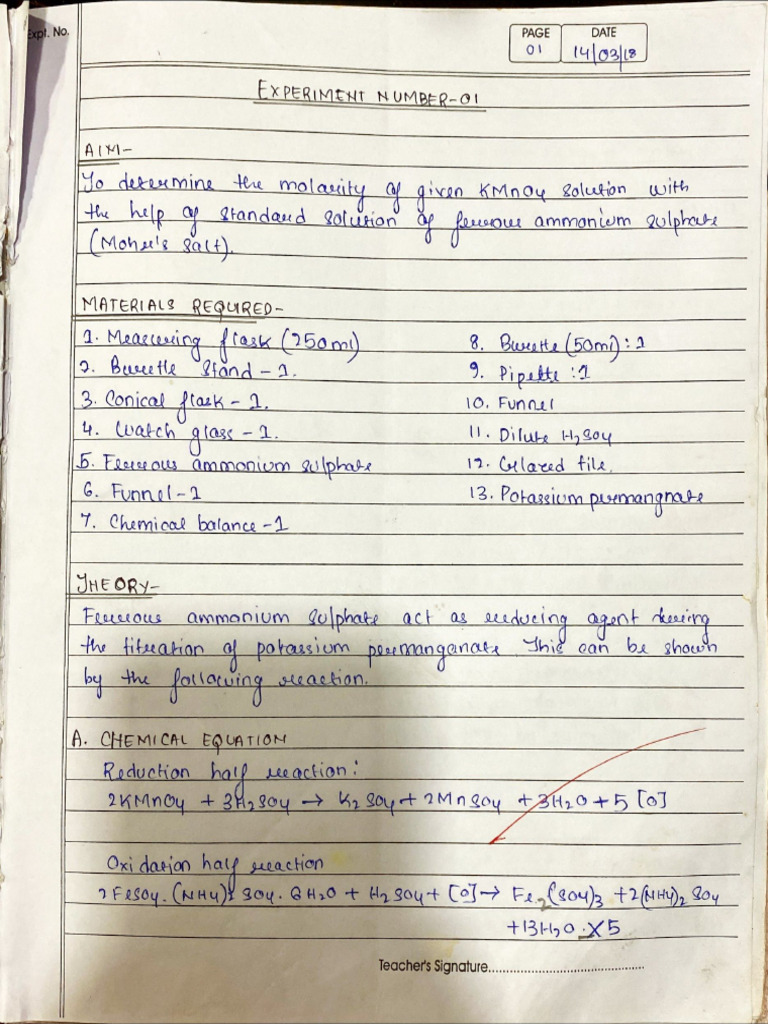 Expt. No.
PAGE DATE
01 14/03/18
EXPERIMENT NUMBER-01
AIM-
To determine the molarity of given KMnO4 solution with
the help of standard solution of ferrous ammonium sulphate
(Mohr's salt).
MATERIALS REQUIRED-
1. Measuring flask (250ml)
2. Burette Stand - 1.
3. Conical flask - 1.
4. Watch glass - 1.
5. Ferrous ammonium sulphate
6. Funnel - 1
7. Chemical balance - 1
8. Burette (50ml) : 1
9. Pipette : 1
10. Funnel
11. Dilute H2SO4
12. Glazed file.
13. Potassium permangnate
THEORY-
Ferrous ammonium sulphate act as reducing agent during
the titration of potassium permanganate. This can be shown
by the following reaction.
A. CHEMICAL EQUATION
Reduction half reaction:
2KMnO4 + 3H2SO4 → K2SO4 + 2MnSO4 + 3H2O + 5[O]
Oxidation half reaction
2FeSO4.(NH4)2SO4.6H2O + H2SO4 + [O] → Fe2(SO4)3 + 2(NH4)2SO4
+13H2O.X5
Teacher's Signature